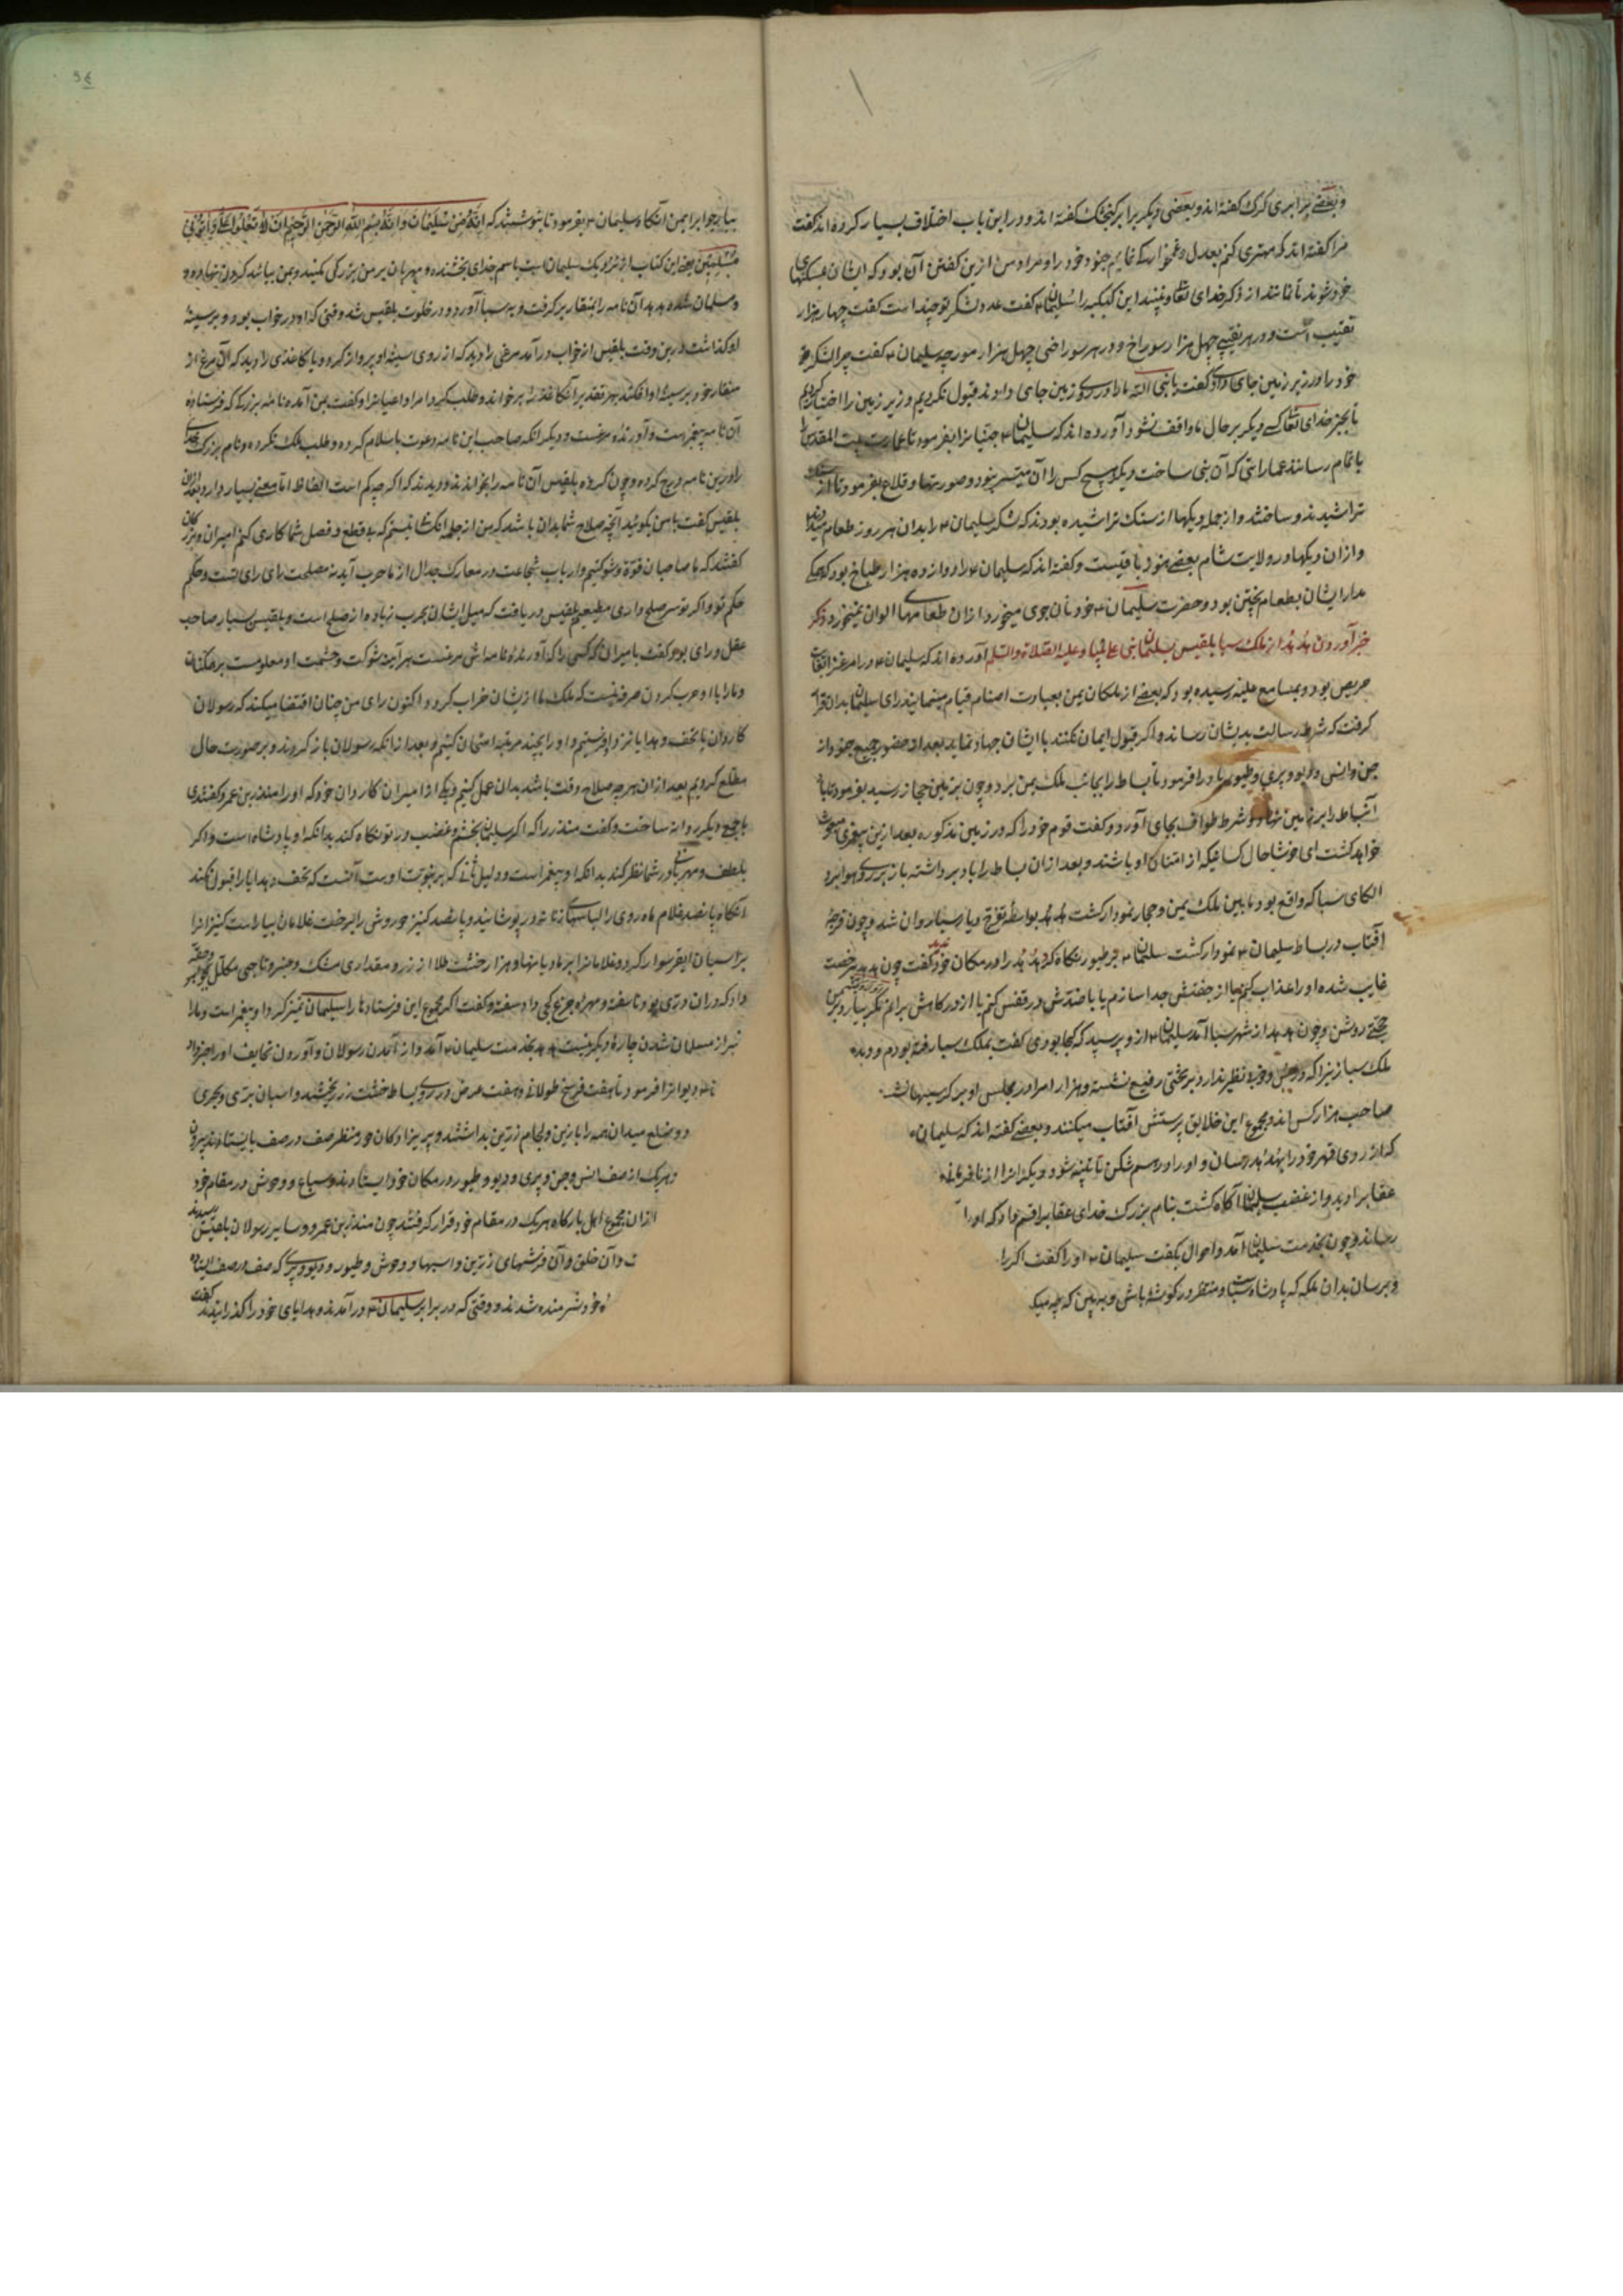 و بعضے برابری کرک گفته اند و بعضی دیگر برابر کنجشک گفته اند و در این باب اختلاف بسیار کرده اند گفت
مرا گفته اند که مهتری کنم بعدل و نمایم جنود خود را و مراد من ازین گفتن آن بود که ایشان
خود شوند تا نمانند از ذکر خدای تعا این که را سلیمان ۴ گفت عدد لشکر تو چند است گفت چهار هزار
نقیب است و در هر نقیبے چهل هزار سوراخ و در هر سوراخی چهل هزار مورچه سلیمان ۴ گفت چرا لشکر
خود را در زیر زمین جای دادی گفت یا نبی الله ما را در روی زمین جای دادند قبول نکردیم و زیر زمین را اختیار کردیم
تا بجز خدای تعا کسے دیگر بر حال ما واقف نشود آورده اند که سلیمان ۴ جنیانرا بفرمود تا عمارت بیت المقدس را
باتمام رسانند عماراتی که آن بنی ساخت دیگر هیچ کس را آن میسر نبود و صورتها و قلاع بفرمود تا از
تراشیدند و ساختند و از جمله دیکها از سنک تراشیده بودند که لشکر سلیمان ۴ را بدان هر روز طعام
و ازان دیکها در ولایت شام بعضے هنوز باقیست و گفته اند که سلیمان ۴ را دوازده هزار طباخ بود که
مدار ایشان بطعام پختن بود و حضرت سلیمان ۴ خود نان جوی میخورد و ازان طعامهای الوان نمیخورد ذکر
خبر آوردن هدهد از ملک سبا بلقیس بسلیمان نبی علیه الصلاة والسلم آورده اند که سلیمان ۴ در امر غزا بغایت
حریص بود و بمسامع علیه رسیده بود که بعضے از ملکان یمن بعبادت اصنام قیام مینمایند رای سلیمان بدان قرار
گرفت که شرط رسالت بدیشان رساند و اگر قبول ایمان نکنند با ایشان جهاد نماید بعد از حضور جمیع جنود از
جن و انس و دیو و پری و طیور باد را فرمود تا بساط را بجانب ملک یمن برد و چون بزمین حجاز رسید بفرمود تا باد
آن بساط را بر زمین نهاد و شرط طواف بجای آورد و گفت قوم خود را که در زمین مذکوره بعد ازین پیغمبری مبعوث
خواهد گشت ای خوشا حال کسانیکه از امتان او باشند و بعد ازان بساط را باد برداشته باز بر روی هوا برد
الکای سبا که واقع بود مابین ملک یمن و حجاز نمودار گشت هدهد بواسطه تفرج دیار سبا روان شد و چون فرجه
آفتاب در بساط سلیمان ۴ نمودار گشت سلیمان ۴ بر طیور نگاه کرد هدهد را در مکان خود ندید گفت چون هدهد بیرخصت
غایب شده او را عذاب کنم یا از جفتش جدا سازم یا با ضدش در قفس کنم یا از درگاهش برانم مکر بیارد برین
حجتے روشن و چون هدهد از شهر سبا آمد سلیمان ۴ ازو پرسید که کجا بودی گفت بملک سبا رفته بودم و دیدم
ملک سبا زنیرا که در حسن و خوبے نظیر ندارد بر تختی رفیع نشسته و هزار امرا در مجلس او بر کرسیها نشسته
صاحب هزار کس اند و مجموع این خلایق پرستش آفتاب میکنند و بعضے گفته اند که سلیمان
که از روی قهر خود را بهدهد رسان و او را در هم شکن تا تنبیه شود و دیگرانرا از نافرمانی
عقاب را دید و از غضب سلیمان آگاه گشت بنام بزرگ خدای عقاب را قسم داد که او را
رساند و چون بخدمت سلیمان آمد و احوال بگفت سلیمان ۴ او را گفت اگر را
و برسان بدان ملکه که پادشاه سباست و منتظر در گوشه باش و ببین که چه میک
بیار جوابرا بمن آنگاه سلیمان ۴ بفرمود تا بنوشتند که إنه من سلیمان وإنه بسم الله الرحمن الرحیم ان لا تعلوا علی وأتونی
مسلمین یعنی این کتاب از نزدیک سلیمان است باسم خدای بخشنده و مهربان بر من بزرگی مکنید و بمن بیائید گردن نهاده
و مسلمان شده هدهد آن نامه را بمنقار برگرفت و به سبا آورد و در خلوت بلقیس شد وقتی که او در خواب بود و بر سینهٔ
او گذاشت درین وقت بلقیس از خواب درآمد مرغی را دید که از روی سینه او پرواز کرد و یا کاغذی را دید که آن مرغ از
منقار خود بر سینه او افکند بهر تقدیر آن کاغذ را بر خواند و طلب کرد امرا و اعیانرا و گفت بمن آمده نامه بزرگ که فرستاده
آن نامه پیغمبر است و آورنده مرغست و دیگر آنکه صاحب این نامه دعوت باسلام کرده و طلب ملک نکرده و نام بزرگ
را درین نامه درج کرده و چون گروه بلقیس آن نامه را بخواندند و دیدند که اگر چه کم است الفاظ اما معنے بسیار دارد بعد ازان
بلقیس گفت با من بگوئید آنچه صلاح شما بدان باشد که من از جمله آنکسان نیستم که بے قطع و فصل شما کاری کنم امیران و بزرگان
گفتند که ما صاحبان قوة و شوکتیم و ارباب شجاعت در معارک جدال از ما حرب آید نه مصلحت رای رای تست و حکم
حکم تو و اگر تو سر صلح داری مطیعیم بلقیس دریافت که میل ایشان بحرب زیاده از صلح است و بلقیس بسیار صاحب
عقل و رای بود گفت با میران که کسی را که آورنده نامه اش مرغست هر آینه شوکت و حشمت او معلومست بر همکنان
و ما را با او حرب کردن صرفه نیست که ملک ما ازیشان خراب گردد اکنون رای من چنان اقتضا میکند که رسولان
کاردان با تحف و هدایا نزد او فرستیم و او را بچند مرتبه امتحان کنیم و بعد از آنکه رسولان باز گردند و بر صورت حال
مطلع گردیم بعد ازان هرچه صلاح وقت باشد بدان عمل کنیم و یکے از امیران کاردان خود که او را منذر بن عمرو گفتندی
با جمعے دیگر روانه ساخت و گفت منذر را که اگر سلیمان بخشم و غضب در تو نگاه کند بدانکه او پادشاه است و اگر
بلطف و مهربانے در شما نظر کند بدانکه او پیغمبر است و دلیل ثانے که بر نبوت اوست آنست که تحف و هدایا را قبول نکند
آنگاه پانصد غلام ماه روی را لباسهای زنانه در پوشانید و پانصد کنیز حوروش را برخت غلامان بیاراست کنیزانرا
بر اسبان ایغر سوار کرد و غلامانرا بر مادیانها و هزار خشت طلا از زر و مقداری مشک و عنبر و تاجی مکلل بجواهر
داد که دران درّی بود ناسفته و مهره جزع کجی داد سفته و گفت اگر مجموع این فرستادها را سلیمان تمیز کرد او پیغمبر است و ما را
غیر از مسلمان شدن چاره دیگر نیست هدهد بخدمت سلیمان ۴ آمد و از آمدن رسولان و آوردن تحایف او را خبر داد
دیوانرا فرمود تا هفت فرسخ طولانے و هفت عرض در روی بساط خشت زر ریختند و اسبان برّی و بحری
دو ضلع میدان همه را با زین و لجام زرّین بداشتند و پریزادگان خوش منظر صف در صف بایستادند
و هریک از صف انس و جن و پری و دیو و طیور در مکان خود ایستادند و سباع و وحوش در مقام خود
ازان مجموع اهل بارگاه هریک در مقام خود قرار گرفتند چون منذر بن عمرو و سایر رسولان بلقیس رسیدند
و آن خلق و آن فرشهای زرّین و اسبها و وحوش و طیور و دیو و پری که صف در صف ایستاده
خود شرمنده شدند و وقتی که در برابر سلیمان ۴ درآمدند و هدایای خود را گذرانیدند گفت